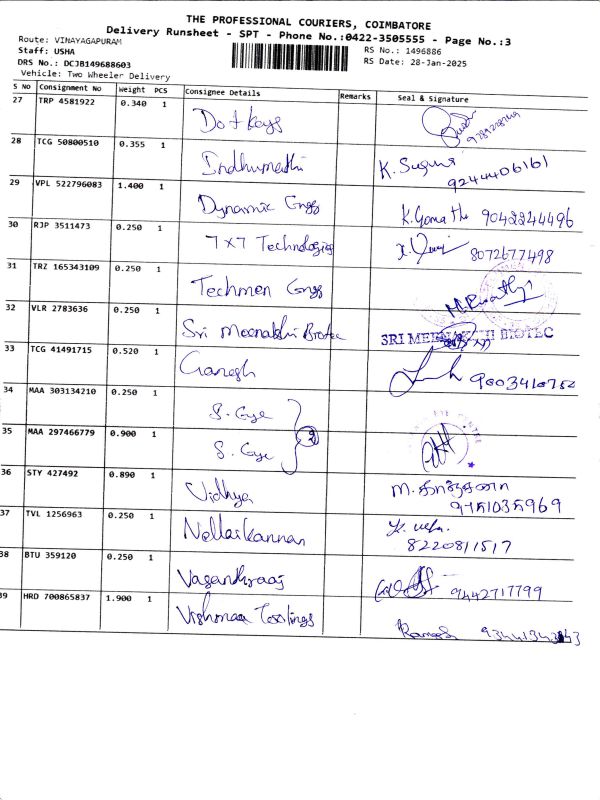 THE PROFESSIONAL COURIERS, COIMBATORE
Delivery Runsheet - SPT - Phone No.:0422-3505555 - Page No.:3
Route: VINAYAGAPURAM
Staff: USHA RS No.: 1496886
DRS No.: DCJB149688603 RS Date: 28-Jan-2025
Vehicle: Two Wheeler Delivery
S No Consignment No Weight PCS Consignee Details Remarks Seal & Signature
27 TRP 4581922 0.340 1 Dot Keys
28 TCG 50800510 0.355 1 Indhumathi K. Suguna 9244406161
29 VPL 522796083 1.400 1 Dynamic Engg K.Gomathi 9042244496
30 RJP 3511473 0.250 1 7x7 Technologies 8072677498
31 TRZ 165343109 0.250 1 Techmen Engg
32 VLR 2783636 0.250 1 Sri Meenakshi Biotec SRI MEENAKSHI BIOTEC
33 TCG 41491715 0.520 1 Ganesh
34 MAA 303134210 0.250 1 S. Eye
35 MAA 297466779 0.900 1 S. Eye 2
36 STY 427492 0.890 1 Vidhya 9751035969
37 TVL 1256963 0.250 1 Nellaikannan 8220811517
38 BTU 359120 0.250 1 Vasanthraaj 9442717799
39 HRD 700865837 1.900 1 Vishmaa Toolings Ramesh